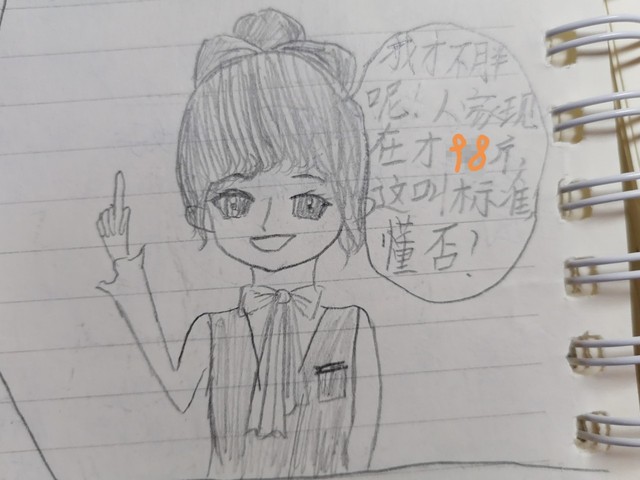 我才不胖
呢！人家现
在才98斤，
这叫标准
懂否？